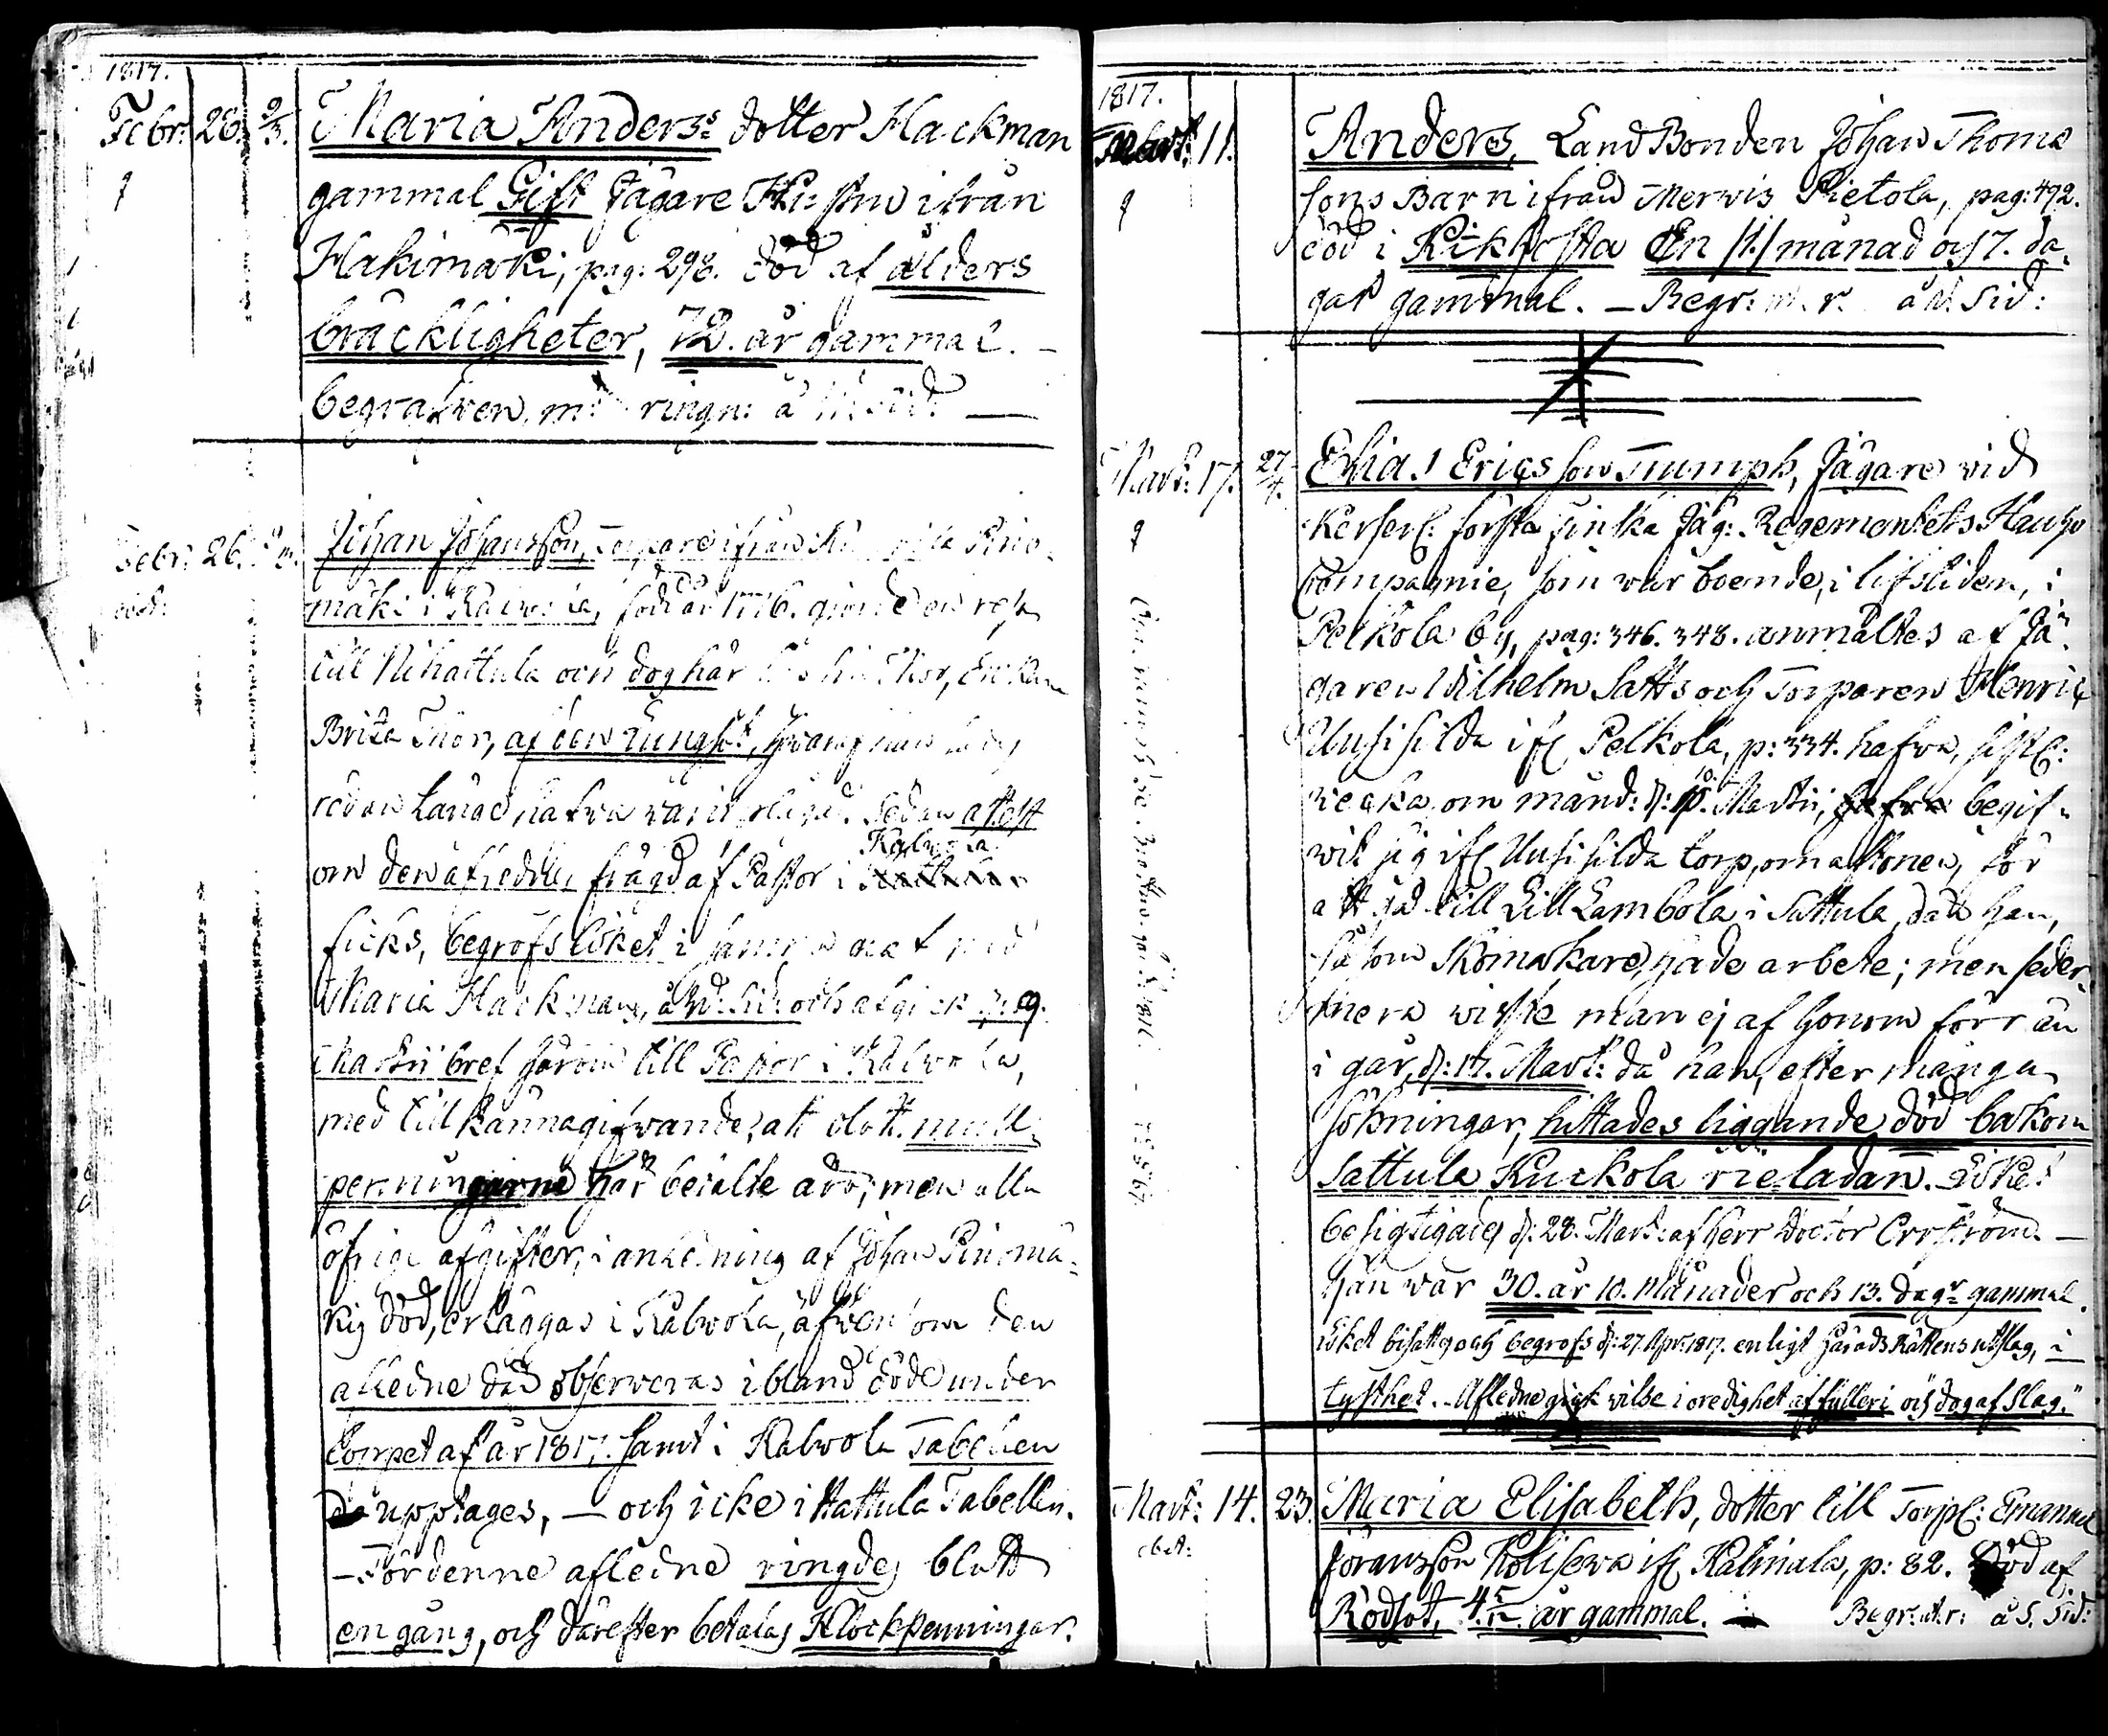 1817.
Febr: 28. 9/3. Maria Anders: dotter Hackman
gammal Gift Jägare Hustru ifrån
Hakimäki, pag: 298. död af ålders
bräckligheter, 72. år gammal. —
begrafwen, md ringn: å sid: —
Febr: 26. Johan Johansson, Torpare ifrån Pino-
mäki i Kalwola, född år 1776. giorde en resa
till Nihattula och dog här Thor, Enkan
Brita Thor, af den Lungsot, hwaraf han
redan länge hafwa warit. Sedan attest
Kalwola
om den aflednes frägd af Pastor i
ficks, begrofs liket i samma graf med
Maria Hackman, å sid: och afgick d: 9.
Martii bref härom till Pastor i Kalwola,
med tillkännagifwande, att blott mull-
penningarne här betalte äro; men alla
öfrige afgifter, i anledning af Johan Pinomä-
kis död, erläggas i Kalwola, äfwen om den
afledne då observeras ibland döde under
loppet af år 1817. samt i Kalwola Tabellen
då upptages, — och icke i Hattula Tabellen.
— För denne afledne ringdes blott
en gång, och därefter betalas Klockpenningar.
1817.
Mart: 11. Anders, LandBonden Johan Thoms
sons Barn ifrån Merwis Pietola, pag: 492.
död i Kikhosta En /1./ månad och 7. da-
gar gammal. — Begr: m. r. å N. Sid:
Mart: 17. 27/4. Elias Ericsson Triumph, Jägare wid
Kejserl: första finska Jäg: Regementets Hauho
Compagnie, som war boende, i lifstiden, i
Pelkola by, pag: 346. 348. anmältes af Jä-
garen Wilhelm Satts och Torparen Henric
Uusisilda ifr Pelkola, p: 334. hafwa, sistl:
wecka om månd: d: 10. Martii, begif-
wit sig ifr Uusisilda torp, om aftonen, för
att gå till Lill Lambola i Sattula, där han,
såsom Skomakare, hade arbete; men seder-
mera wiste man ej af honom förr än
i går, d: 17. Mart: då han, efter många
sökningar, hittades liggande död bakom
Sattula Kuckola rieladan. Liket
besigtigades d: 28. Mart: af herr Doctor Orrström. —
Han war 30. år 10. Månader och 13. dagr gammal.
Liket bisattes och begrofs d: 27. Apr: 1817. enligt HäradsRättens utslag, i
tysthet. Afledne gick wilse i oredighet af fylleri och dog af Slag."
Mart: 14. 23. Maria Elisabeth, dotter till Torp: Emanuel
obet: Jöransson Kolisewa ifr Kalmula, p: 82. Död af
Rödsot, år gammal. — Begr: u. r: å S. Sid: